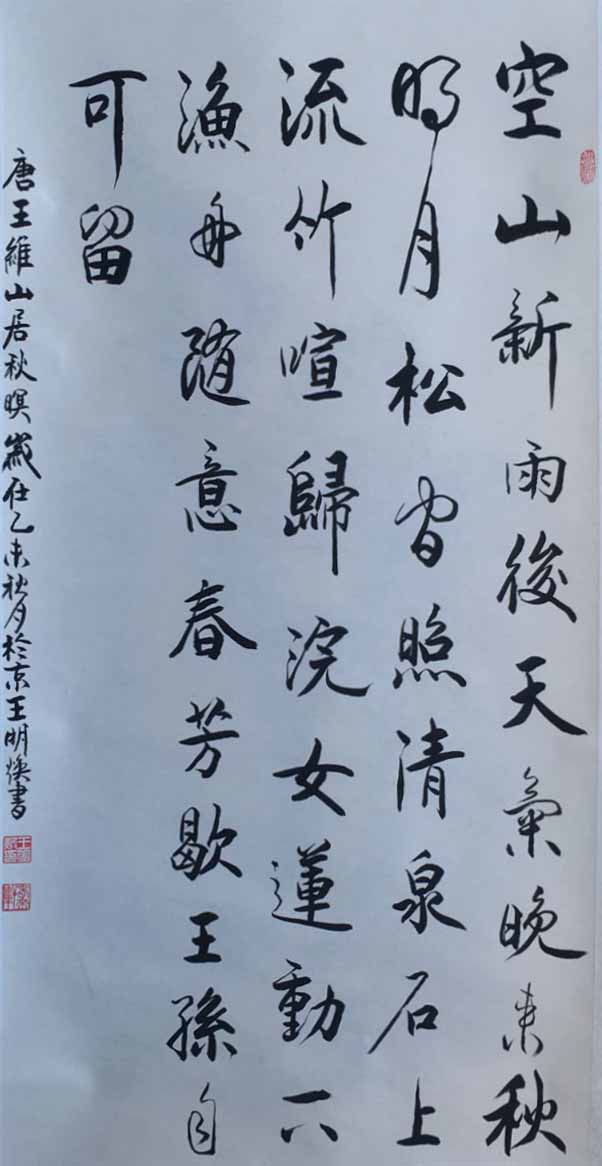 空山新雨後天氣晚来秋
明月松间照清泉石上
流竹喧歸浣女蓮動下
漁舟随意春芳歇王孫自
可留
唐王維山居秋暝歲在乙未秋月於京王明焕書